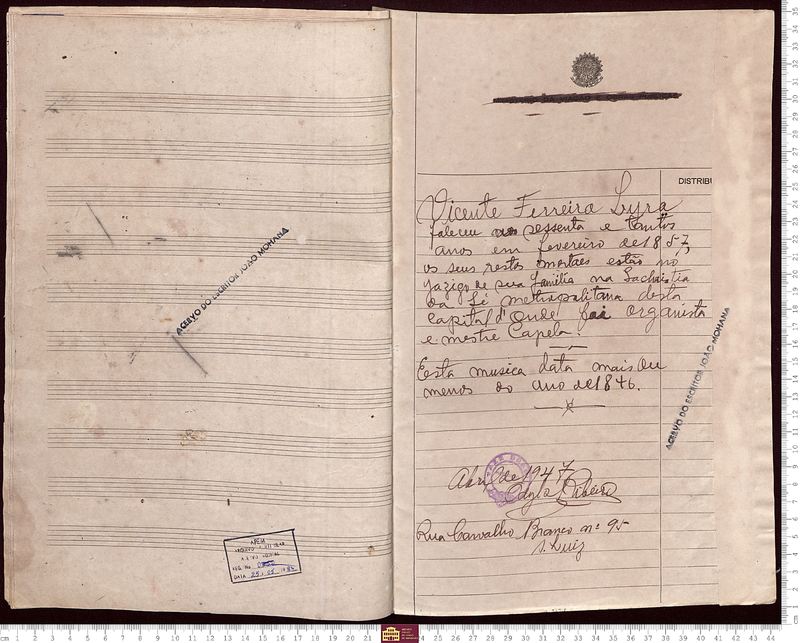 ACERVO DO ESCRITOR JOÃO MOHANA
APEM
REG. No.
DATA 25.05.
DISTRIBU
Vicente Ferreira Lyra
faleceu aos sessenta e tantos
anos em fevereiro de 1857,
os seus restos mortaes estão no
jazigo de sua familia na Sachristia
da Sé metropolitana desta
capital d'onde foi organista
e mestre Capela.
Esta musica data mais ou
menos do ano de 1846.
ACERVO DO ESCRITOR JOÃO MOHANA
Abril de 1947
Ribeiro
Rua Carvalho Branco nº 95
S. Luiz